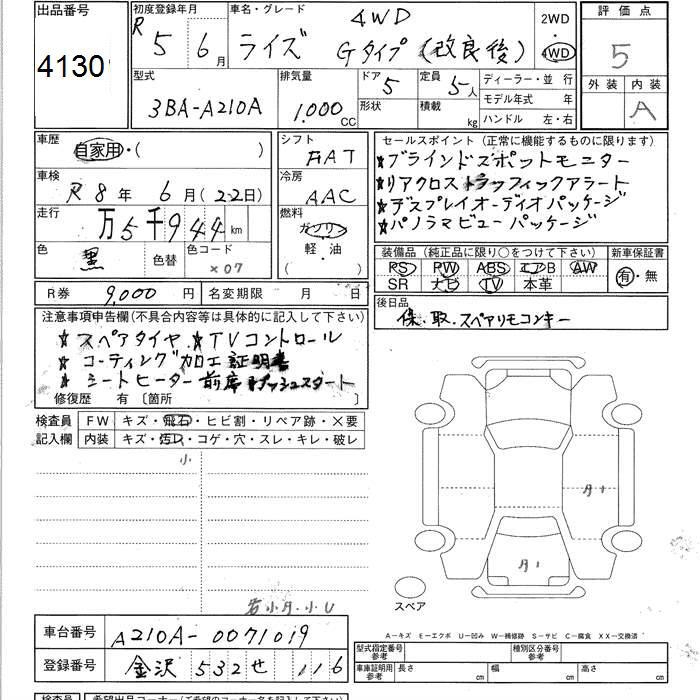 出品番号
4130
初度登録年月
R 5 6月
車名・グレード
4WD
ライズ Gタイプ (改良後)
2WD
・
4WD
評価点
5
外装 内装
A
型式
3BA-A210A
排気量
1,000 CC
ドア 5
形状
定員 5人
積載 kg
ディーラー・並 行
モデル年式 年
ハンドル 左・右
車歴
自家用・( )
シフト
FAT
セールスポイント (正常に機能するものに限ります)
★ブラインドスポットモニター
★リアクロストラフィックアラート
★デスプレイオーディオパッケージ
★パノラマビューパッケージ
車検
R8年 6月(22日)
冷房
AAC
走行
万5千944km
燃料
ガソリン
軽・油
( )
色
黒
色替
色コード
×07
装備品 (純正品に限り○をつけて下さい)
PS PW ABS エアB AW
SR ナビ TV 本革
新車保証書
有・無
R券 9,000 円
名変期限 月 日
後日品
保.取.スペアリモコンキー
注意事項申告欄(不具合内容等は具体的に記入して下さい)
★スペアタイヤ ★TVコントロール
★コーティング加工 証明書
★シートヒーター前席 プッシュスタート
修復歴 有〔箇所 〕
検査員
記入欄
FW キズ・飛石・ヒビ割・リペア跡・×要
内装 キズ・汚レ・コゲ・穴・スレ・キレ・破レ
小
スペア
A-キズ E-エクボ U-凹み W-補修跡 S-サビ C-腐食 XX-交換済
車台番号 A210A-0071019
登録番号 金沢 532 せ 116
型式指定番号
参考
種別区分番号
参考
車庫証明用
参考
長さ cm
幅 cm
高さ cm
検査員
希望出品コーナー(ご希望のコーナー名を記入して下さい)